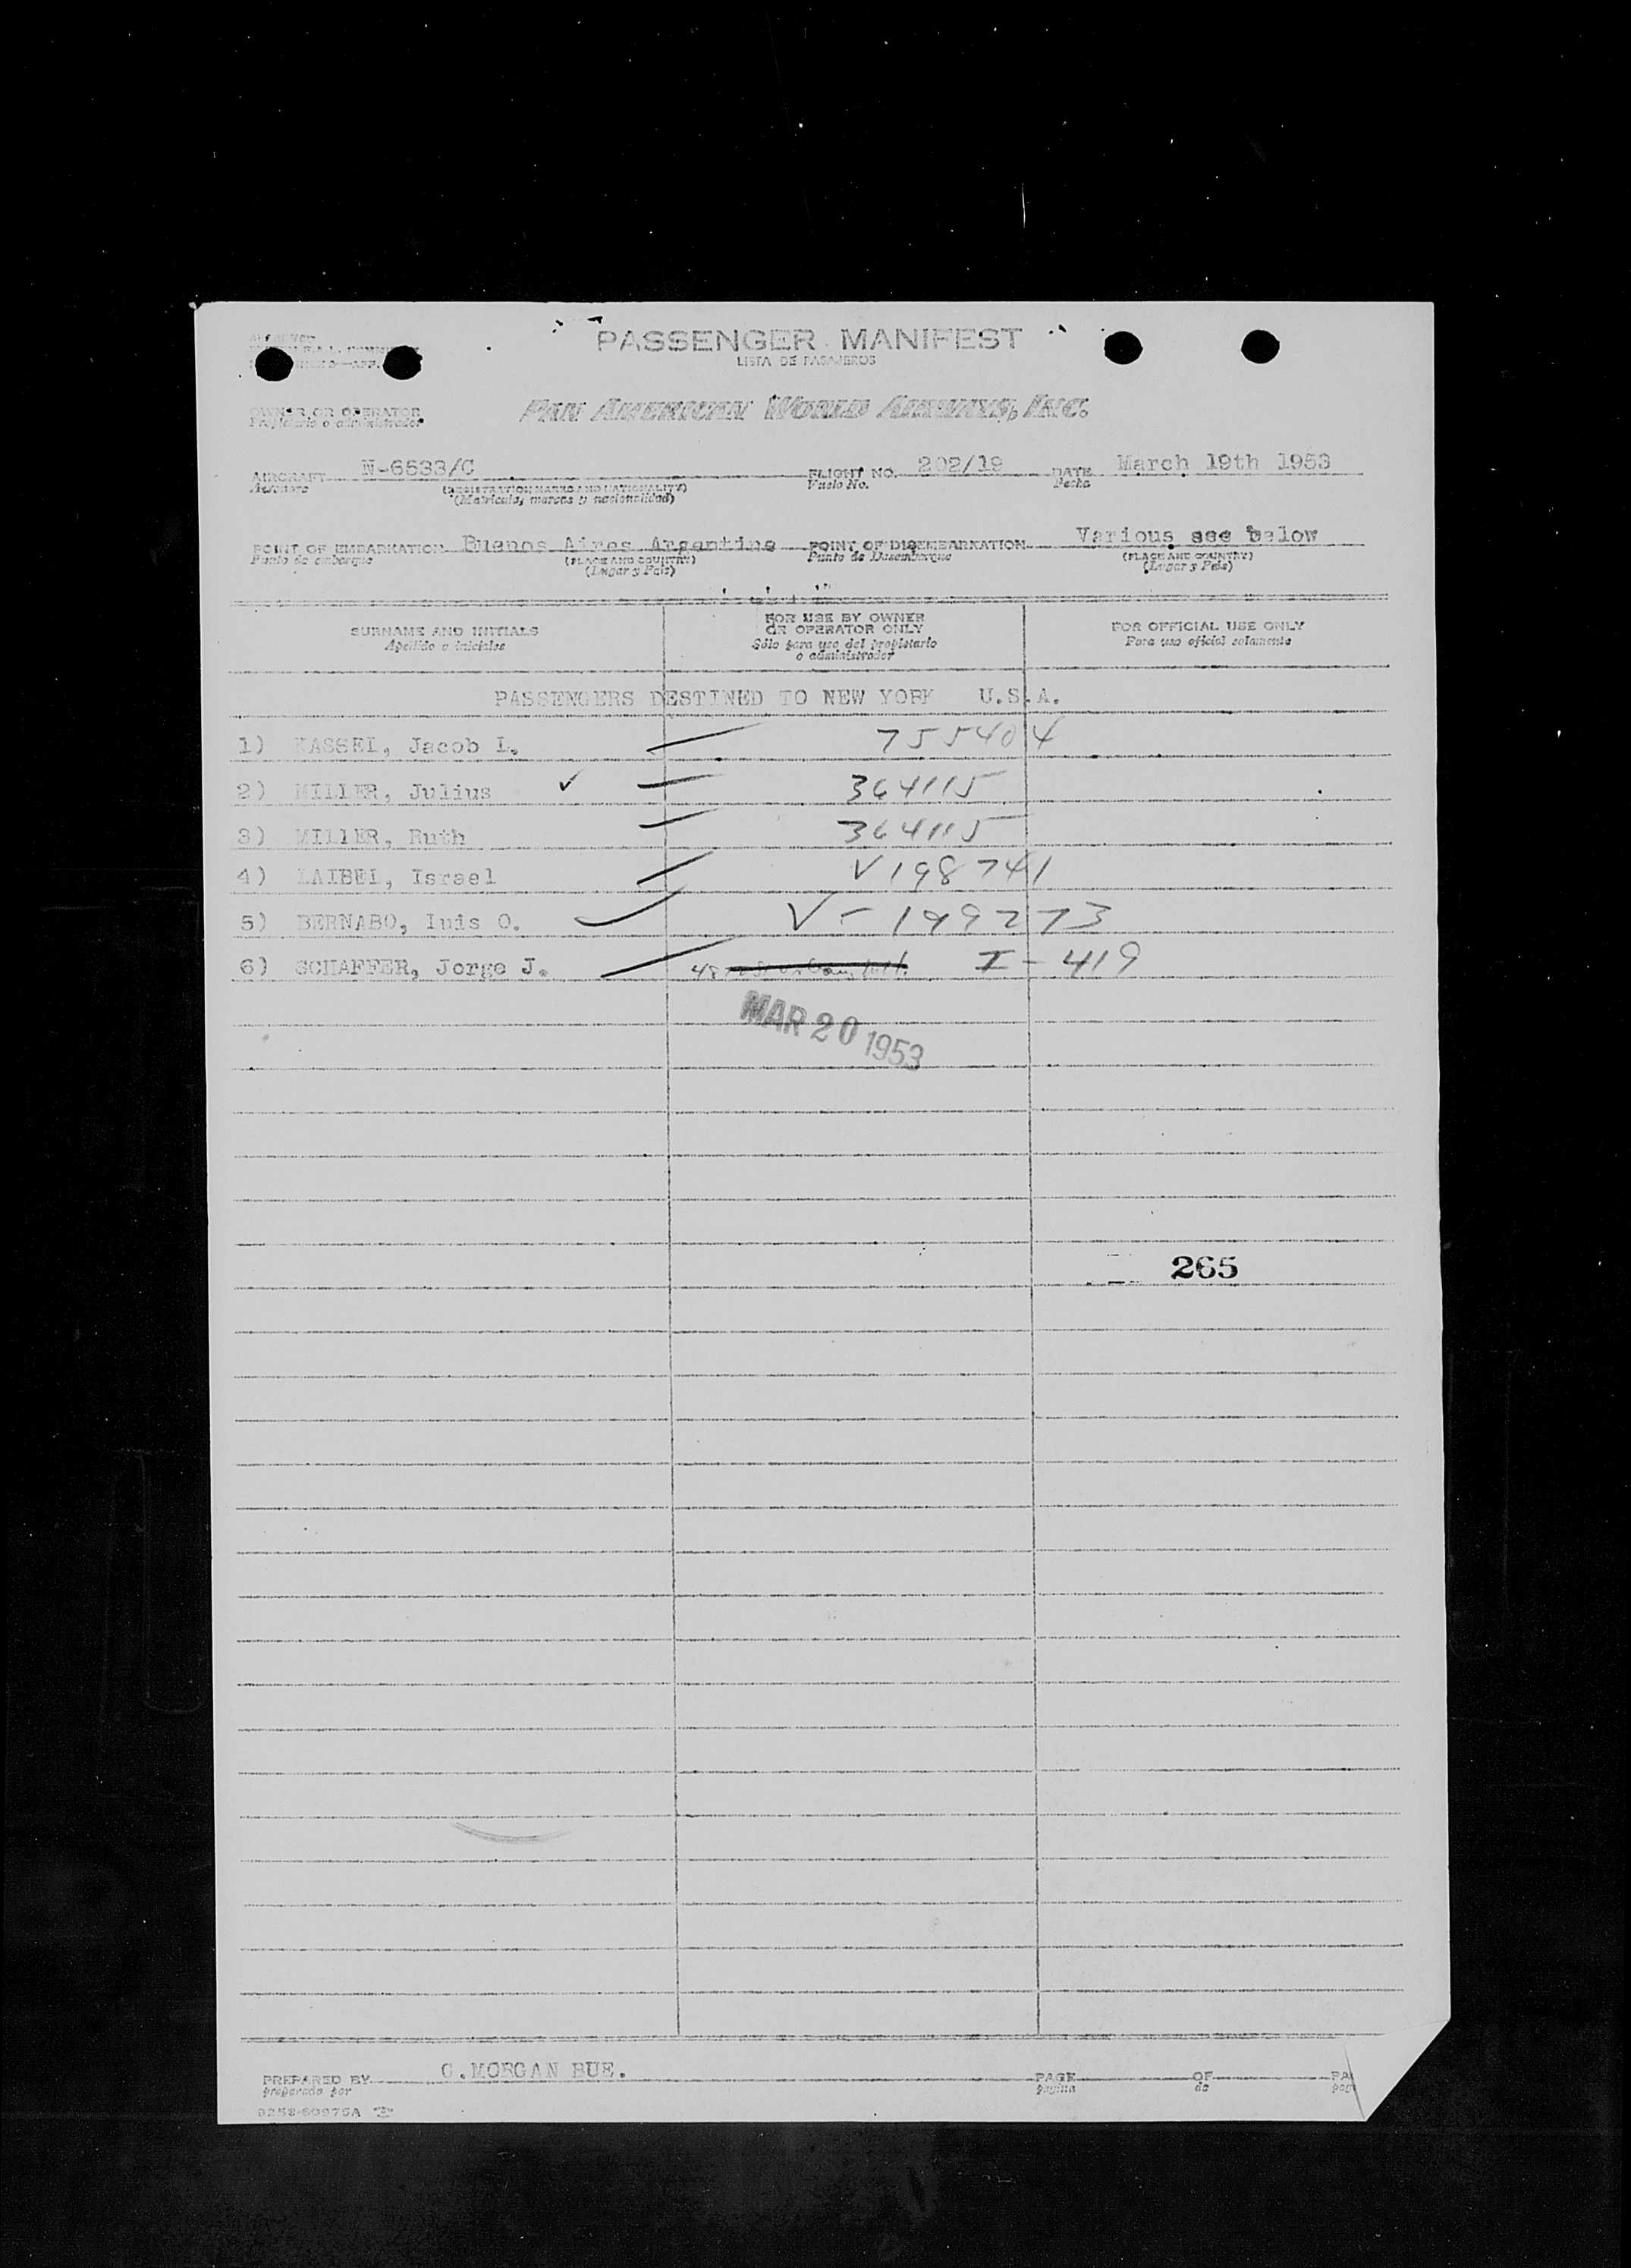 PASSENGER MANIFEST
LISTA DE PASAJEROS
OWNER OR OPERATOR
Propietario o administrador
PAN AMERICAN WORLD AIRWAYS, INC.
AIRCRAFT N-6533/C FLIGHT NO. 202/19 DATE March 19th 1953
Aeronave (REGISTRATION MARKS AND NATIONALITY) Vuelo No. Fecha
(Matricula, marcas y nacionalidad)
POINT OF EMBARKATION Buenos Aires Argentina POINT OF DISEMBARKATION Various see below
Punto de embarque (PLACE AND COUNTRY) Punto de Desembarque (PLACE AND COUNTRY)
(Lugar y País) (Lugar y País)
SURNAME AND INITIALS
Apellido e iniciales
FOR USE BY OWNER
OR OPERATOR ONLY
Sólo para uso del propietario
o administrador
FOR OFFICIAL USE ONLY
Para uso oficial solamente
PASSENGERS DESTINED TO NEW YORK U.S.A.
1) KASSEL, Jacob L. 755404
2) MILLER, Julius ✓ 364115
3) MILLER, Ruth 364115
4) LAIBEL, Israel V198741
5) BERNABO, Luis O. V-199273
6) SCHAFFER, Jorge J. I-419
MAR 20 1953
265
PREPARED BY G.MORGAN BUE. PAGE OF PA
preparado por página de